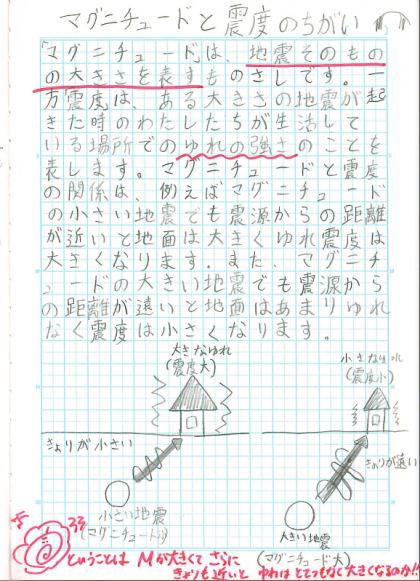 マグニチュードと震度のちがい
「マグニチュード」は、地震そのもの
の大きさを表すものさしです。一
方震度は、ある大きさの地震が起
きた時のわたしたちが生活して
いる場所でのゆれの強さのことを
表します。マグニチュードと震度
の関係は、例えばマグニチュード
の小さい地震でも震源からの距離
が近いと地面は大きくゆれ震度は
大きくなります。また、マグニチ
ュードの大きい地震でも震源から
の距離が遠いと地面はあまりゆれ
なく震度は小さくなります。
大きなゆれ
(震度大)
小さなゆれ
(震度小)
きょりが小さい
きょりが遠い
小さい地震
(マグニチュード小)
大きい地震
(マグニチュード大)
ということは Mが大きくてさらに
きょりも近いと ゆれはとてつもなく大きくなるのか!!